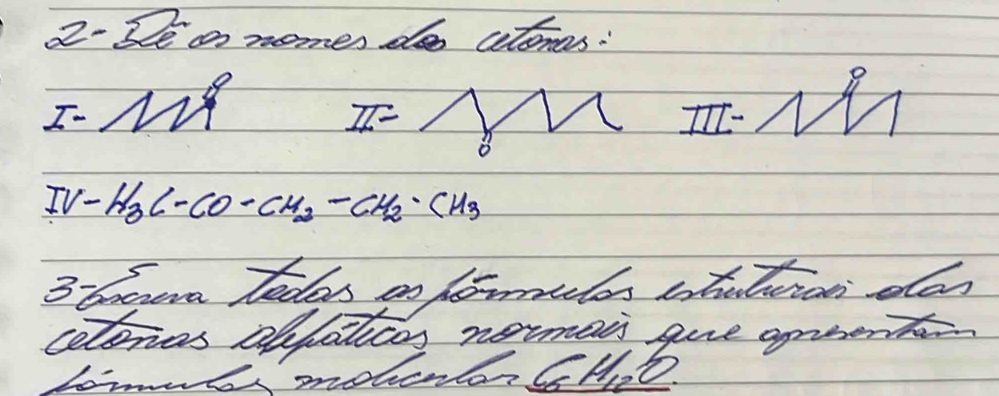 2- Dê os nomes das cetonas:
I- O II- O III- O
IV- H3C-CO-CH2-CH2-CH3
3- Escreva todas as fórmulas estruturais das
cetonas alifáticas normais que apresentam
fórmulas molecular C6H12O.